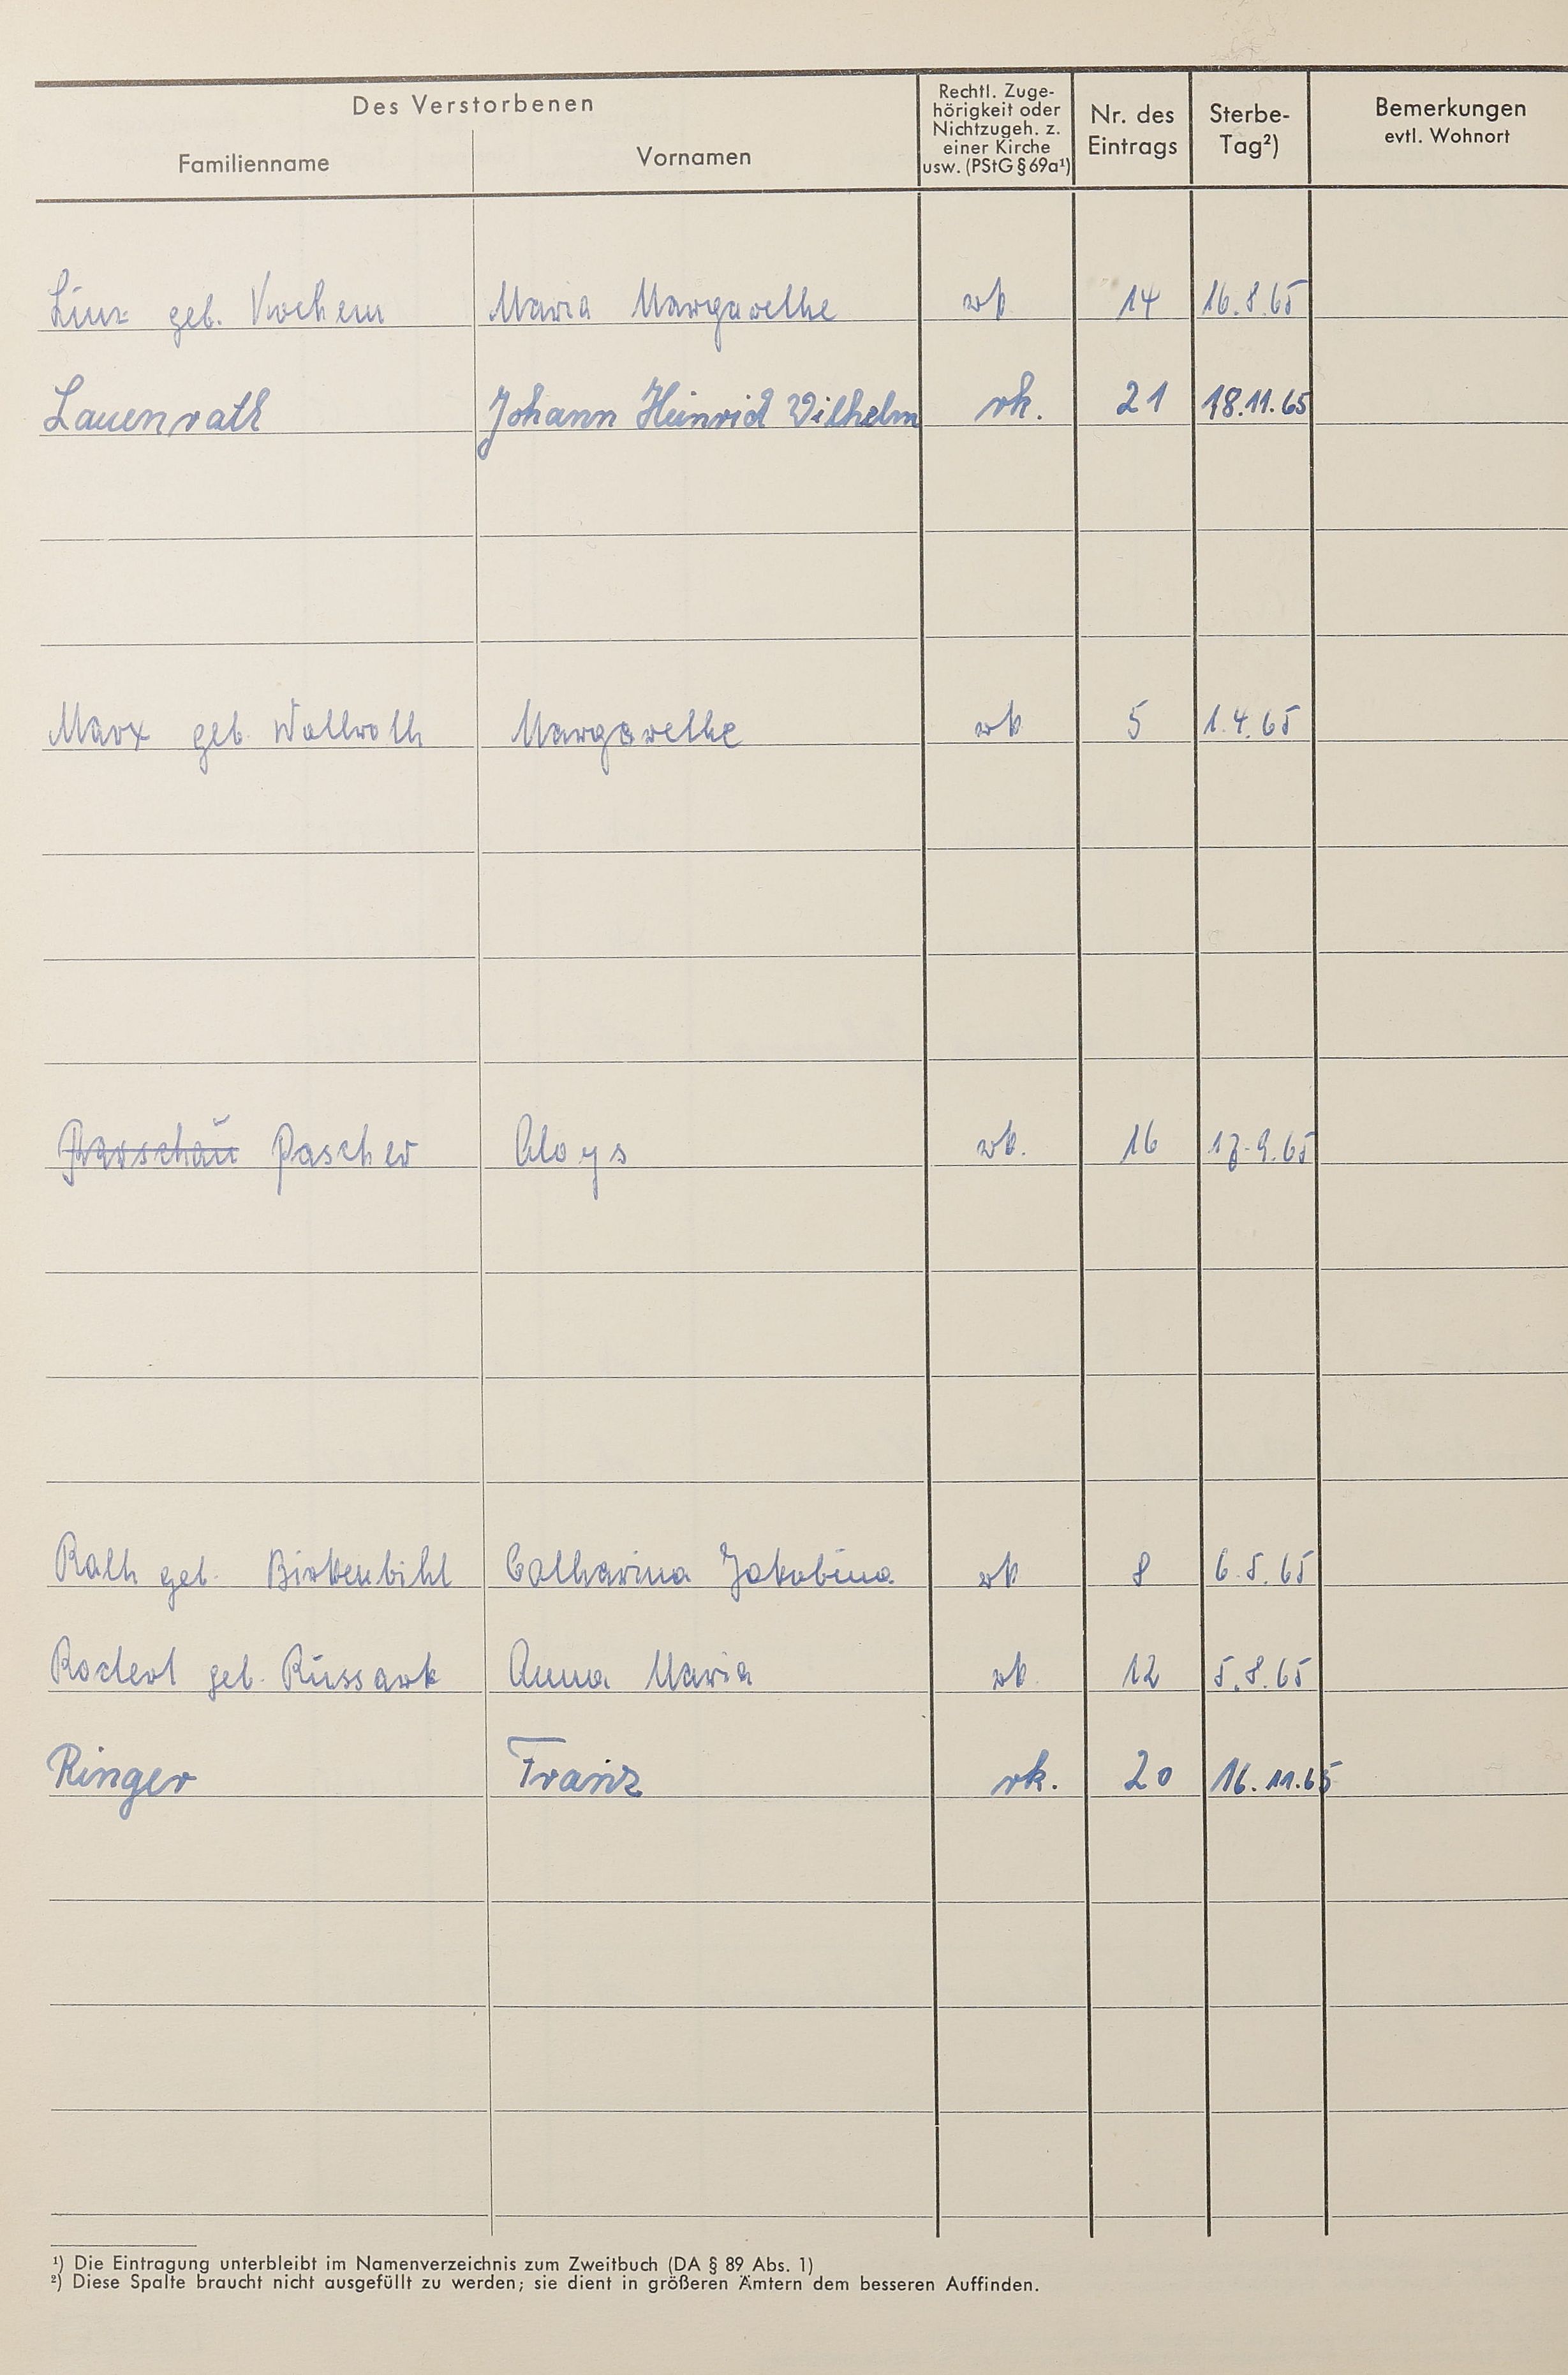 Des Verstorbenen
Familienname
Vornamen
Rechtl. Zuge-
hörigkeit oder
Nichtzugeh. z.
einer Kirche
usw. (PStG § 69a¹)
Nr. des
Eintrags
Sterbe-
Tag²)
Bemerkungen
evtl. Wohnort
Linz geb. Kochem Maria Margarethe rk 14 16.8.65
Lauenrath Johann Heinrich Wilhelm rk. 21 18.11.65
Marx geb. Wollroth Margarethe rk 5 1.4.65
Parschau Pascher Aloys rk. 16 17.9.65
Rath geb. Birkenbihl Catharina Jakobina rk 8 6.5.65
Rodert geb. Russark Anna Maria rk 12 5.8.65
Ringer Franz rk. 20 16.11.65
¹) Die Eintragung unterbleibt im Namenverzeichnis zum Zweitbuch (DA § 89 Abs. 1)
²) Diese Spalte braucht nicht ausgefüllt zu werden; sie dient in größeren Ämtern dem besseren Auffinden.